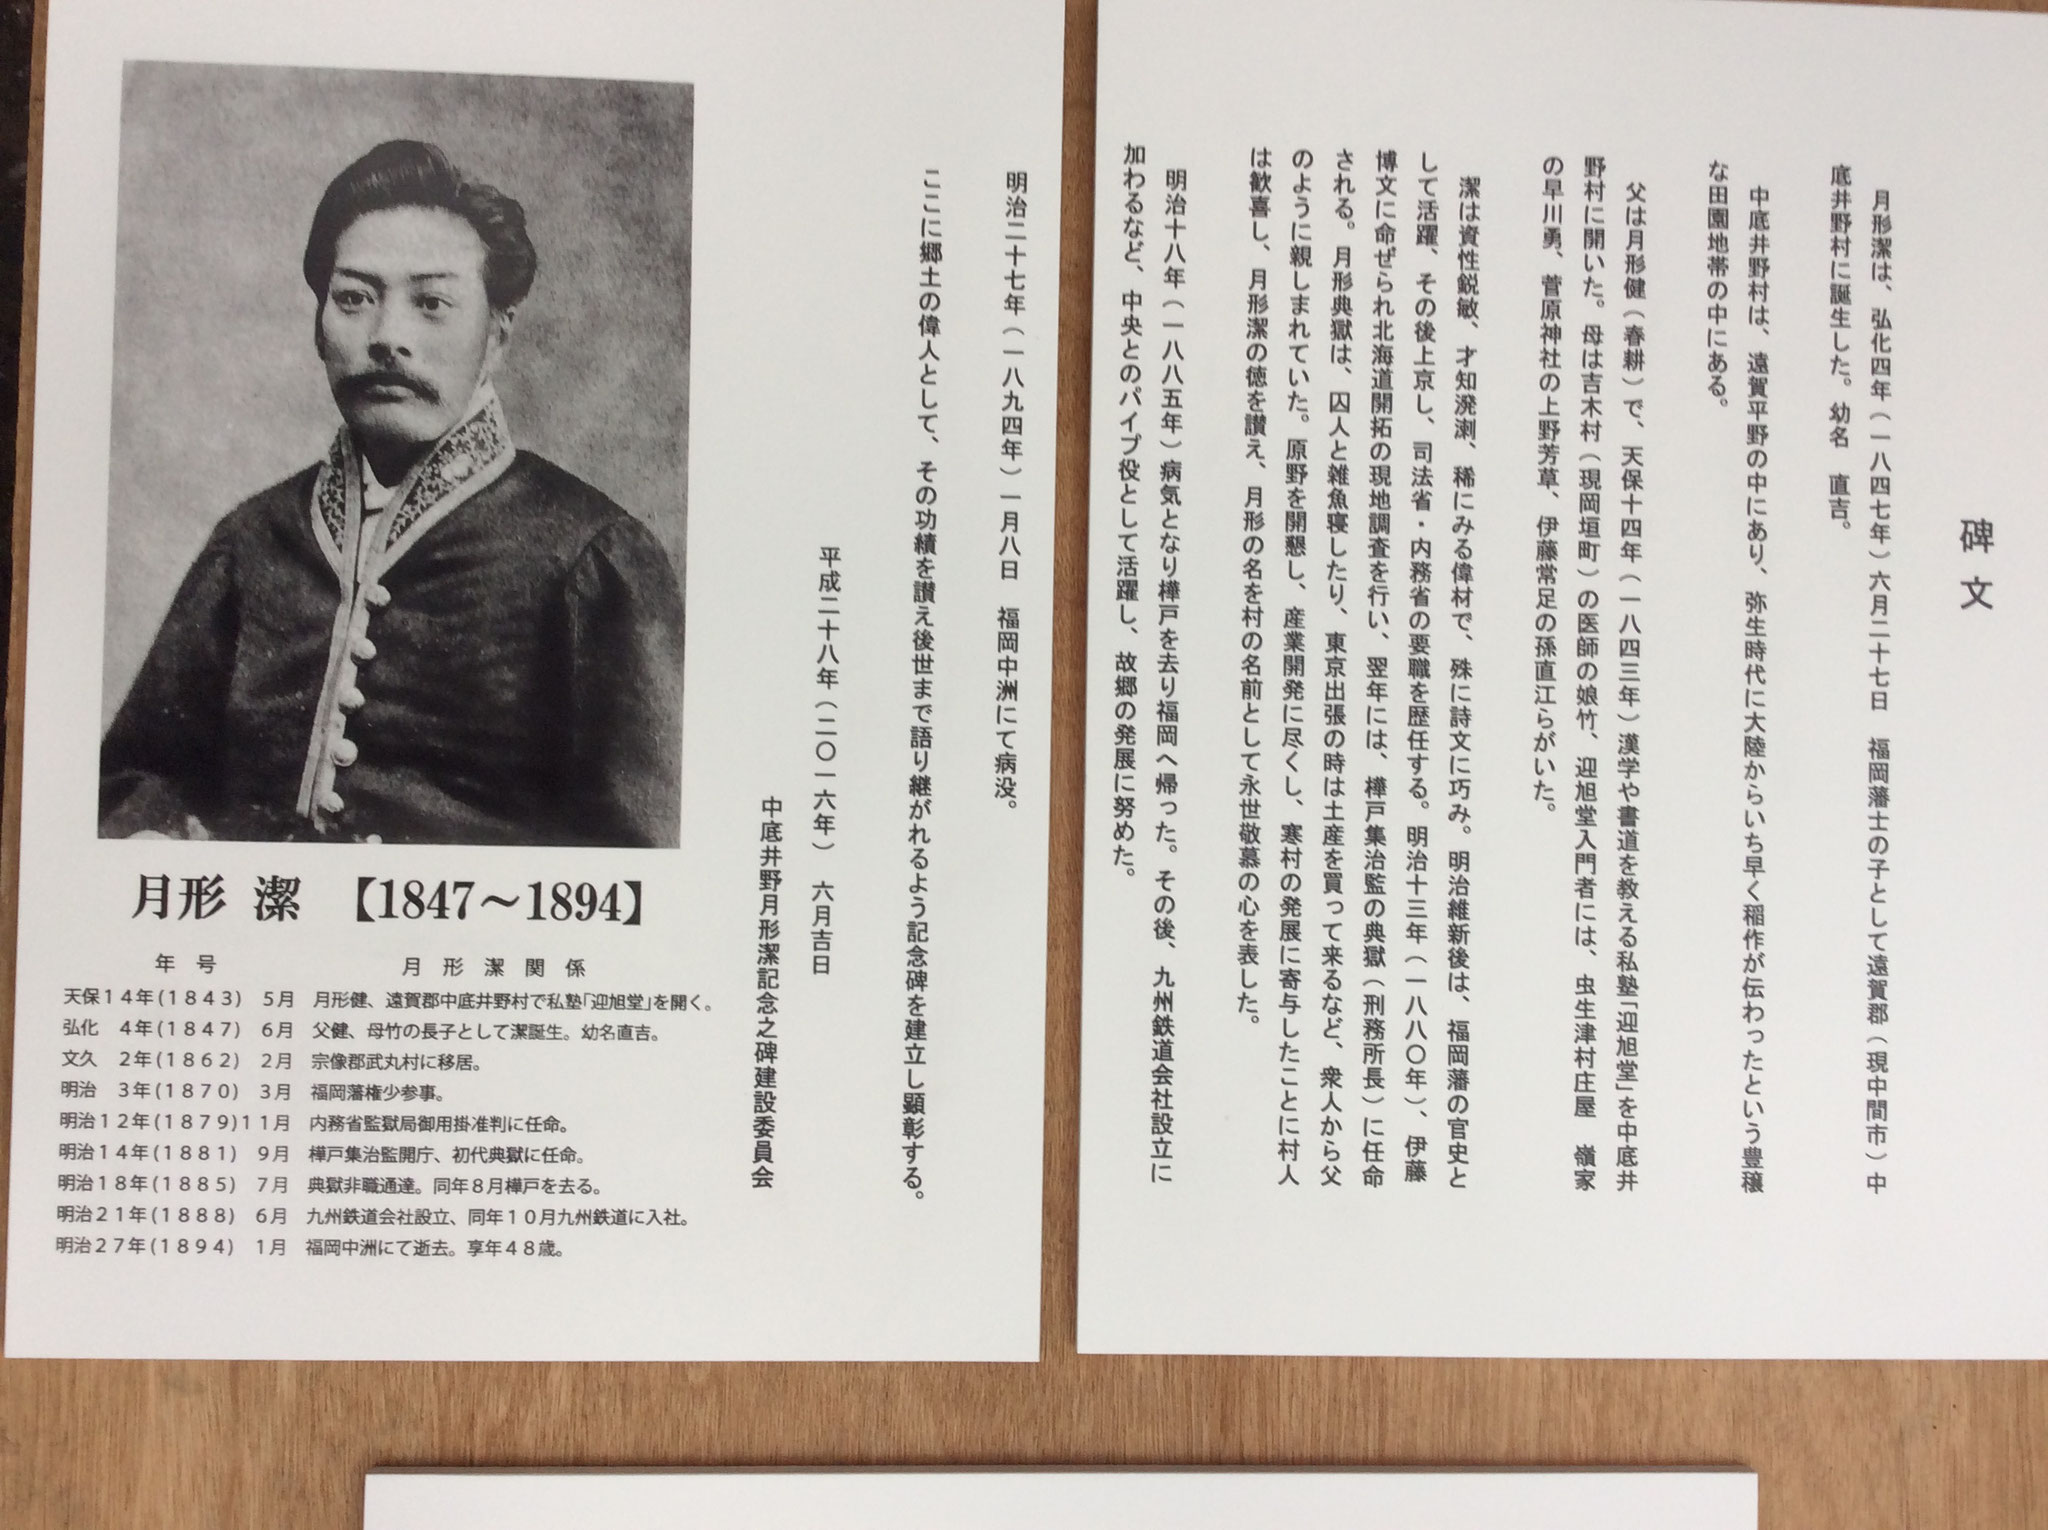 碑文
月形潔は、弘化四年（一八四七年）六月二十七日　福岡藩士の子として遠賀郡（現中間市）中
底井野村に誕生した。幼名　直吉。
中底井野村は、遠賀平野の中にあり、弥生時代に大陸からいち早く稲作が伝わったという豊穣
な田園地帯の中にある。
父は月形健（春耕）で、天保十四年（一八四三年）漢学や書道を教える私塾「迎旭堂」を中底井
野村に開いた。母は吉木村（現岡垣町）の医師の娘竹、迎旭堂入門者には、虫生津村庄屋　嶺家
の早川勇、菅原神社の上野芳草、伊藤常足の孫直江らがいた。
潔は資性鋭敏、才知溌溂、稀にみる偉材で、殊に詩文に巧み。明治維新後は、福岡藩の官吏と
して活躍、その後上京し、司法省・内務省の要職を歴任する。明治十三年（一八八〇年）、伊藤
博文に命ぜられ北海道開拓の現地調査を行い、翌年には、樺戸集治監の典獄（刑務所長）に任命
される。月形典獄は、囚人と雑魚寝したり、東京出張の時は土産を買って来るなど、衆人から父
のように親しまれていた。原野を開懇し、産業開発に尽くし、寒村の発展に寄与したことに村人
は歓喜し、月形潔の徳を讃え、月形の名を村の名前として永世敬慕の心を表した。
明治十八年（一八八五年）病気となり樺戸を去り福岡へ帰った。その後、九州鉄道会社設立に
加わるなど、中央とのパイプ役として活躍し、故郷の発展に努めた。
明治二十七年（一八九四年）一月八日　福岡中洲にて病没。
ここに郷土の偉人として、その功績を讃え後世まで語り継がれるよう記念碑を建立し顕彰する。
平成二十八年（二〇一六年）　六月吉日
中底井野月形潔記念之碑建設委員会
月形 潔 【1847〜1894】
年　号　月形潔関係
天保１４年(１８４３)　５月　月形健、遠賀郡中底井野村で私塾「迎旭堂」を開く。
弘化　４年(１８４７)　６月　父健、母竹の長子として潔誕生。幼名直吉。
文久　２年(１８６２)　２月　宗像郡武丸村に移居。
明治　３年(１８７０)　３月　福岡藩権少参事。
明治１２年(１８７９)１１月　内務省監獄局御用掛准判に任命。
明治１４年(１８８１)　９月　樺戸集治監開庁、初代典獄に任命。
明治１８年(１８８５)　７月　典獄非職通達。同年８月樺戸を去る。
明治２１年(１８８８)　６月　九州鉄道会社設立、同年１０月九州鉄道に入社。
明治２７年(１８９４)　１月　福岡中洲にて逝去。享年４８歳。